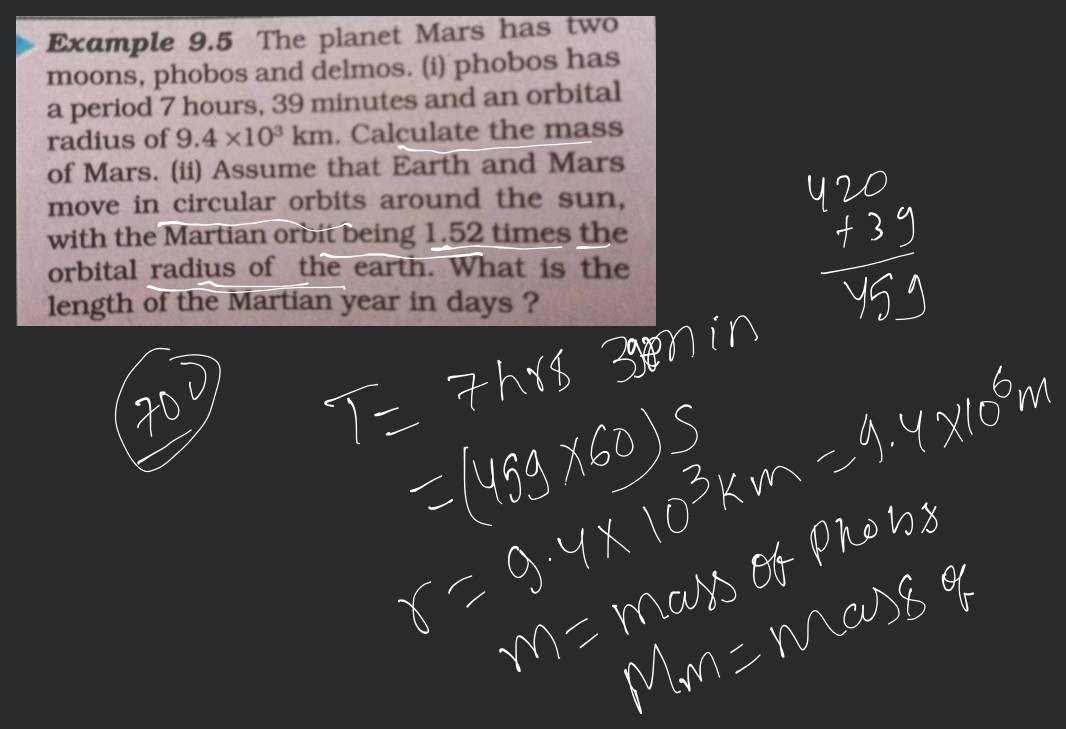 Example 9.5 The planet Mars has two
moons, phobos and delmos. (i) phobos has
a period 7 hours, 39 minutes and an orbital
radius of 9.4 ×10³ km. Calculate the mass
of Mars. (ii) Assume that Earth and Mars
move in circular orbits around the sun,
with the Martian orbit being 1.52 times the
orbital radius of the earth. What is the
length of the Martian year in days ?
420
+39
459
T= 7hrs 39min
=(459×60)S
r= 9.4×10³km =9.4×10⁶m
m= mass of Phobs
Mm= mass of